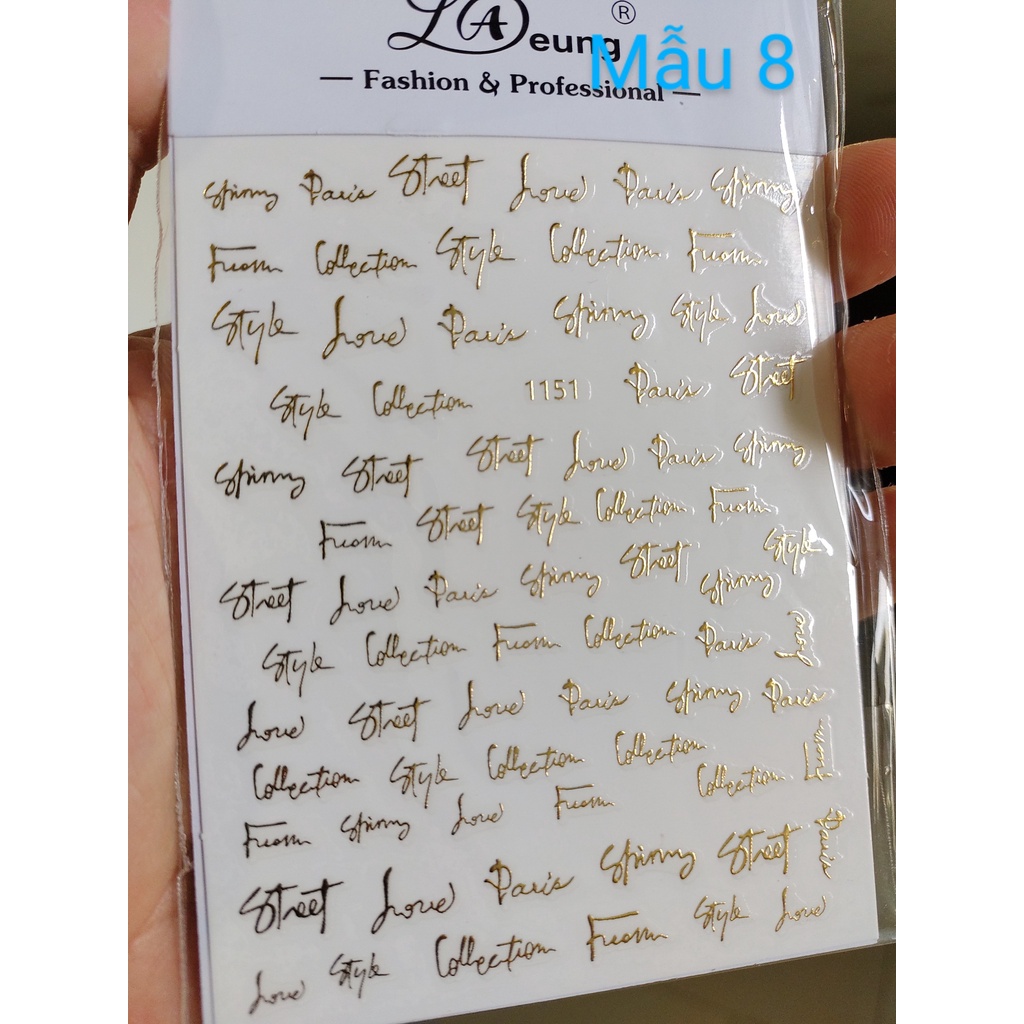 LADeung ®
Mẫu 8
— Fashion & Professional —
Spinny Paris Street Love Paris Spinny
Fuomn Collection Style Collection Fuomn
Style Love Paris Spinny Style Love
Style Collection 1151 Paris Street
Spinny Street Street Love Paris Spinny
Fuomn Street Style Collection Fuomn
Street Love Paris Spinny Street Spinny Style
Style Collection Fuomn Collection Paris Love
Love Street Love Paris Spinny Paris
Collection Style Collection Collection Collection Fuomn
Fuomn Spinny Love Fuomn
Street Love Paris Spinny Street Paris
Love Style Collection Fuomn Style Love